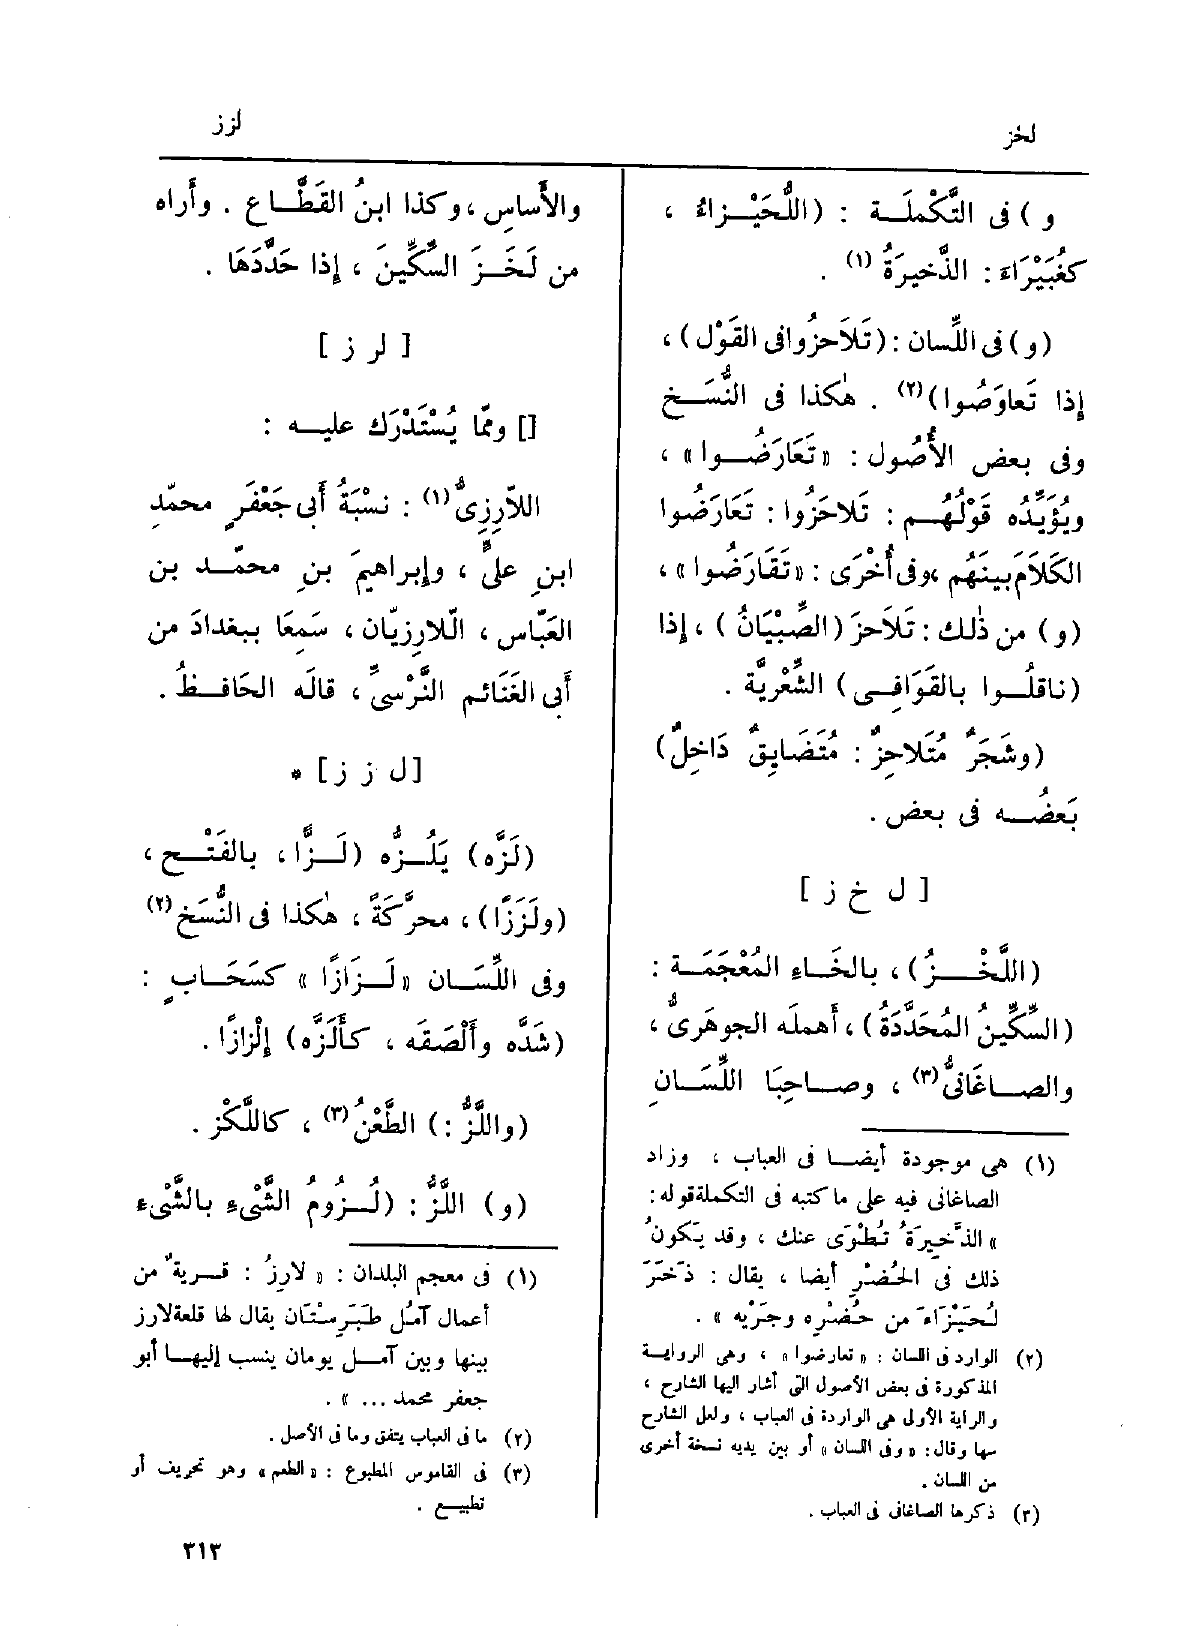 لخز
لزز
و) فى التَّكْملَـة : (اللُّحَيْـزاءُ ،
كغُبَيْرَاءَ : الذَّخيرَةُ (١) .
(و) فى اللِّسان : (تَلاَحزُوا فى القَوْل) ،
إذا تَعاوَصُوا) (٢) . هٰكذا فى النُّسَـخ
وفى بعض الأُصُول : «تَعَارَضُـوا» ،
ويُؤَيِّدُه قَوْلُهُـم : تَلاحَزُوا : تَعَارَضُوا
الكَلَامَ بينَهُم ، وفى أُخْرَى : «تَقَارَضُوا» ،
(و) من ذٰلك : تَلاَحزَ (الصِّبْيَانُ ) ، إذا
(ناقلُـوا بالقَوَافِـى) الشِّعْريَّة .
(وشَجَرٌ مُتَلاحِزٌ : مُتَضَايِقٌ دَاخِلٌ)
بَعضُـه فى بعض .
[ ل خ ز ]
(اللَّخْـزُ) ، بالخَـاءِ المُعْجَمَـة :
(السِّكِّينُ المُحَدَّدَةُ) ، أَهملَه الجوهَرىُّ ،
والصـاغَانىُّ (٣) ، وصـاحِبَا اللِّسَـانِ
(١) هى موجودة أيضـا فى العباب ، وزاد
الصاغانى فيه على ما كتبه فى التكملة قوله :
» الذَّخيرَةُ تُطْوَى عنك ، وقد يَكونُ
ذلك فى الحُضْرِ أيضا ، يقال : ذَخَرَ
لُحَيْزَاءَ من حُضْرِه وجَرْيِه » .
(٢) الوارد فى اللسان : «تعارضوا» ، وهى الروايـة
المذكورة فى بعض الأصول التى أشار اليها الشارح ،
والراية الأولى هى الواردة فى العباب ، ولعل الشارح
سها وقال : «وفى اللسان» أو بين يديه نسخة أخرى
من اللسان .
(٣) ذكرها الصاغانى فى العباب .
والأَساسِ ، وكذا ابنُ القَطَّـاع . وأُراه
من لَخَـزَ السِّكِّينَ ، إذا حَدَّدَهَا .
[ ل ر ز ]
[] وممّا يُسْتَدْرَك عليـه :
اللاَّرِزِىُّ (١) : نسْبَةُ أَبى جَعْفَرٍ محمّدِ
ابنِ علىٍّ ، وإبراهيمَ بنِ محمّـد بن
العَبّاس ، الّلارِزيّان ، سَمِعَا ببغدادَ من
أَبى الغَنَائم النَّرْسىِّ ، قالَه الحَافـظُ .
[ل ز ز] *
(لَزَّه) يَلُـزُّه (لَـزًّا ، بالفَتْـح ،
(ولَزَزًا) ، محرَّكةً ، هٰكذا فى النُّسَخ (٢)
وفى اللِّسَـان «لَـزَازًا» كسَحَـابٍ :
(شَدَّه وأَلْصَقَه ، كأَلَزَّه) إِلْزازًا .
(واللَّزُّ :) الطَّعْنُ (٣) ، كاللَّكْز .
(و) اللَّزُّ : (لُـزُومُ الشَّىْءِ بالشَّىْءِ
(١) فى معجم البلدان : «لارِزُ : قـرية من
أعمال آمُل طَبَرِسْتَان يقال لها قلعة لارز
بينها وبين آمـل يومان ينسب إليهـا أبو
جعفر محمد ... » .
(٢) ما فى العباب يتفق وما فى الأصل .
(٣) فى القاموس المطبوع : «الطعم» وهو تحريف أو
تطبيـع .
٣١٣